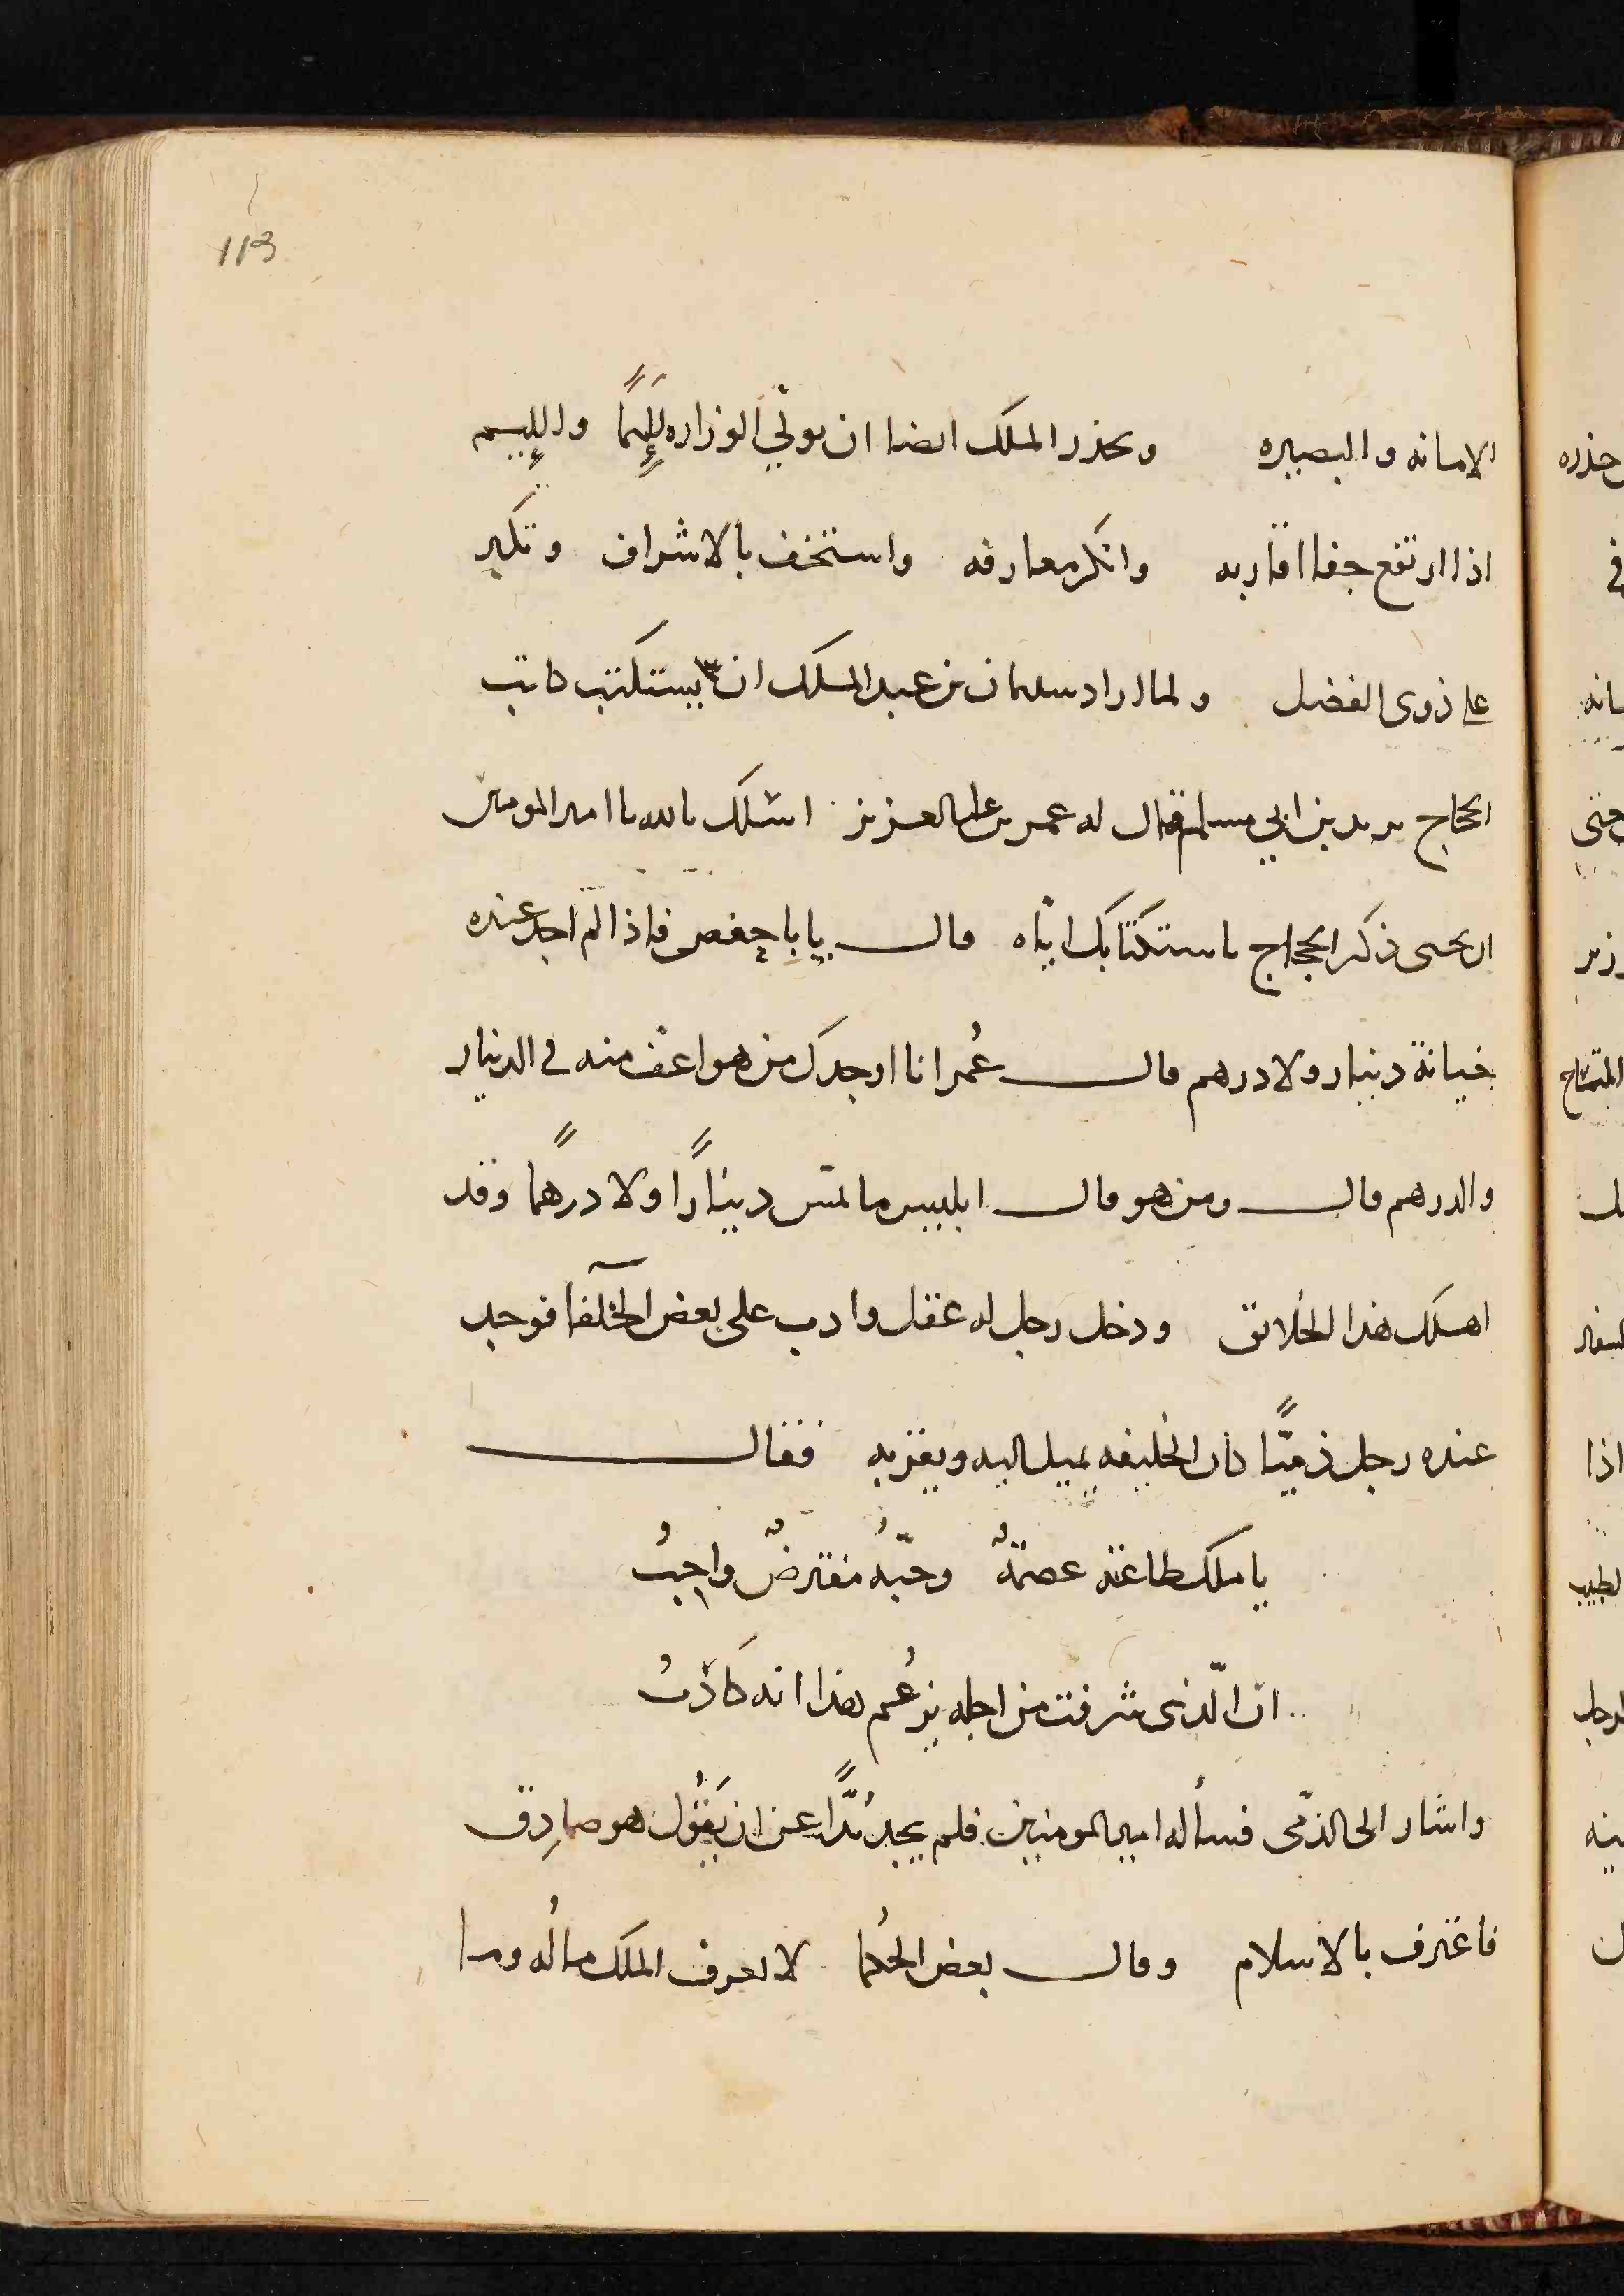 113
الامانه والبصيره ويحذر الملك ايضا ان يولّي الوزاره لئيمًا واللئيم
اذا ارتفع جفا اقاربه وانكر معارفه واستخف بالاشراف وتكبر
على ذوى الفضل ولما اراد سليمان بن عبد الملك ان يستكتب كاتب
الحجاج يزيد بن ابي مسلم قال له عمر بن عبد العزيز اسلك بالله يا امير المومنين
ان تحيى ذكر الحجاج باستكتابك ايّاه قال يا با حفص فاذا لم اجد عنده
خيانة دينار ولا درهم قال عُمر انا اوجدك من هو اعف منه في الدينار
والدرهم قال ومن هو قال ابليس ما لمس دينارًا ولا درهمًا وقد
اهلك هذا الخلائق ودخل رجل له عقل وادب على بعض الخلفا فوجد
عنده رجل ذميًّا كان الخليفه يميل اليه ويقربه فقال
يا ملك طاعته عصمةٌ وحبّهُ مفترضٌ واجبُ
انّ الّذى شرفت من اجله يزعُم هذا انه كاذبُ
واشار الى الذمّى فسأله امير المومنين فلم يجد بُدًّا عن ان يَقُول هو صادِق
فاعترف بالاسلام وقال بعض الحُكما لا يعرف الملك ماله وما